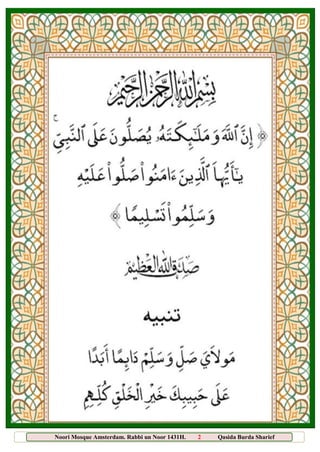 بِسْمِ اللهِ الرَّحْمٰنِ الرَّحِيْمِ
﴿ إِنَّ ٱللَّهَ وَمَلَـٰٓئِكَتَهُۥ يُصَلُّونَ عَلَى ٱلنَّبِىِّ ۚ
يَـٰٓأَيُّهَا ٱلَّذِينَ ءَامَنُوا۟ صَلُّوا۟ عَلَيْهِ
وَسَلِّمُوا۟ تَسْلِيمًا ﴾
صَدَقَ اللهُ الْعَظِيْمُ
تنبيه
مَولَايَ صَلِّ وَسَلِّمْ دَايِمًا أَبَدًا
عَلَى حَبِيبِكَ خَيْرِ الْخَلْقِ كُلِّهِمِ
Noori Mosque Amsterdam. Rabbi un Noor 1431H. 2 Qasida Burda Sharief